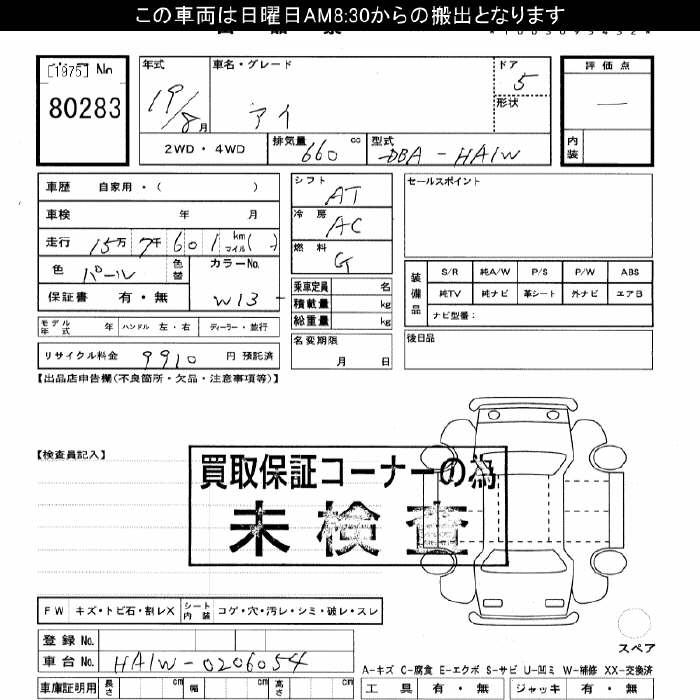 この車両は日曜日AM8:30からの搬出となります
[1975] No
80283
年式
19/8月
車名・グレード
アイ
ドア
5
形状
評価点
―
内装
2WD・4WD
排気量
660
cc
型式
DBA-HA1W
車歴 自家用・( )
車検 年 月
走行 15万 7千 6 0 1 km マイル( )
色 パール
色替
カラーNo.
W13
保証書 有・無
モデル年式 年 ハンドル 左・右 ディーラー・並行
リサイクル料金 9910 円 預託済
シフト
AT
冷房
AC
燃料
G
乗車定員 名
積載量 kg
総重量 kg
名変期限
月 日
セールスポイント
装備品
S/R 純A/W P/S P/W ABS
純TV 純ナビ 革シート 外ナビ エアB
ナビ型番:
後日品
【出品店申告欄(不良箇所・欠品・注意事項等)】
【検査員記入】
買取保証コーナーの為
未検査
FW キズ・トビ石・割レX
シート内装 コゲ・穴・汚レ・シミ・破レ・スレ
登録 No.
車台 No. HA1W-0206054
車庫証明用 長さ cm 幅 cm 高さ cm
スペア
A-キズ C-腐食 E-エクボ S-サビ U-凹ミ W-補修 XX-交換済
工具 有・無 ジャッキ 有・無